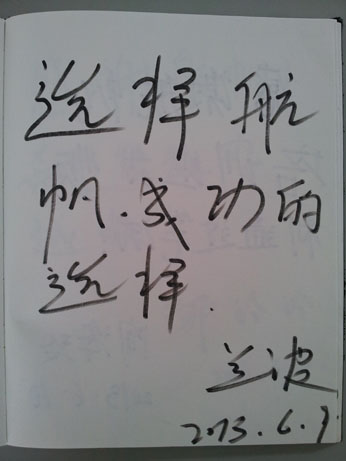 选择航
帆.成功的
选择.
兰波
2013.6.9